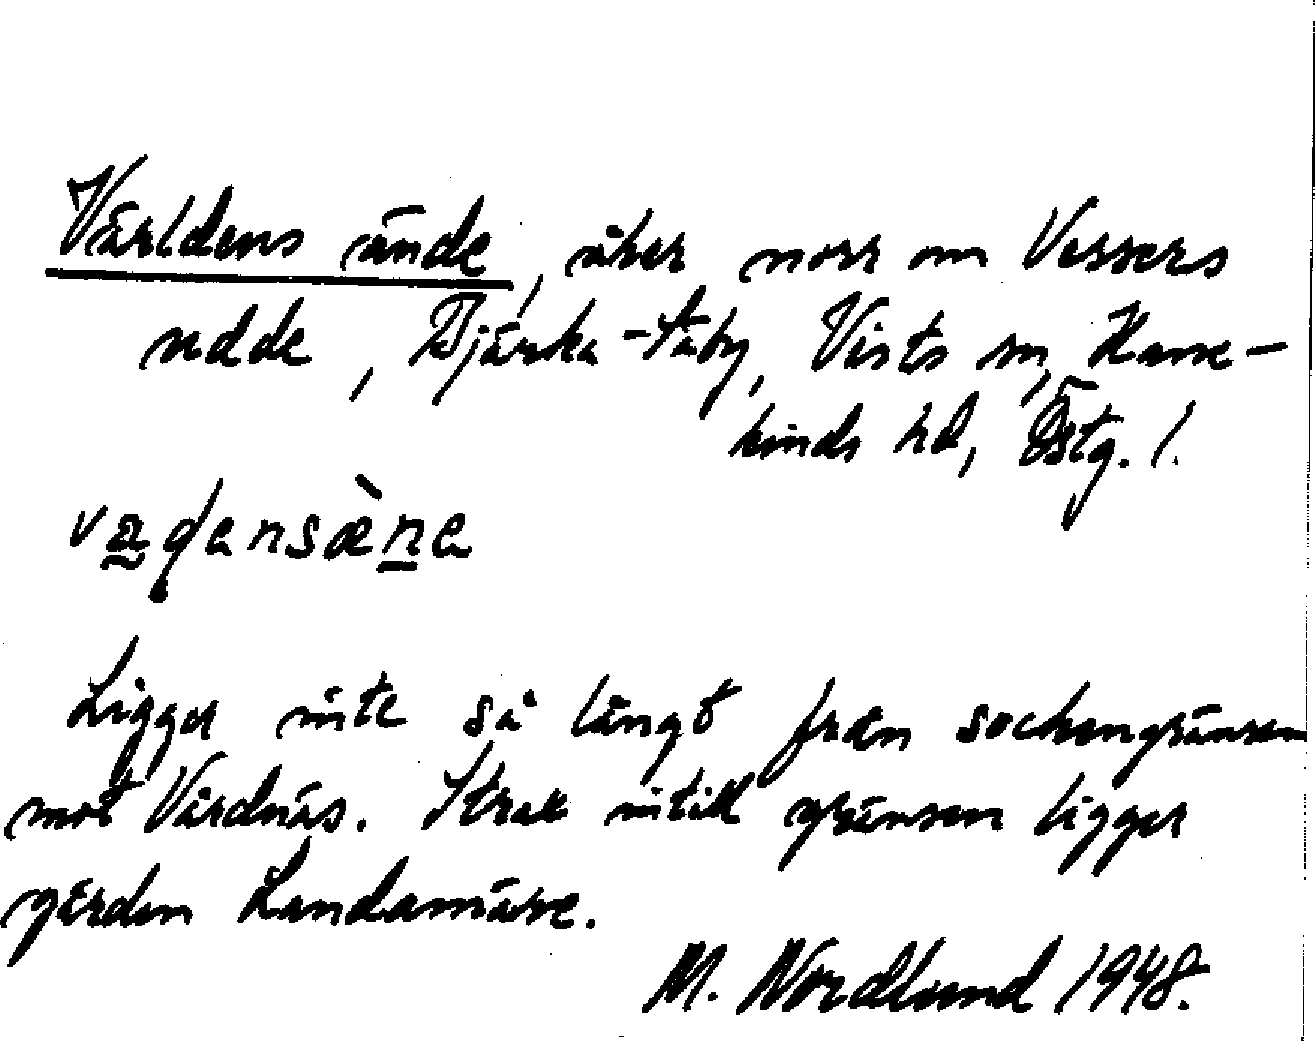 Världens ände, åker norr om Vessers
udde, Bjärka-Säby, Vists sn, Hane-
kinds hd, Östg. l.
Ligger inte så långt från sockengränsen
mot Vårdnäs. Strax intill gränsen ligger
gården Landamäre.
M. Nordlund 1948.